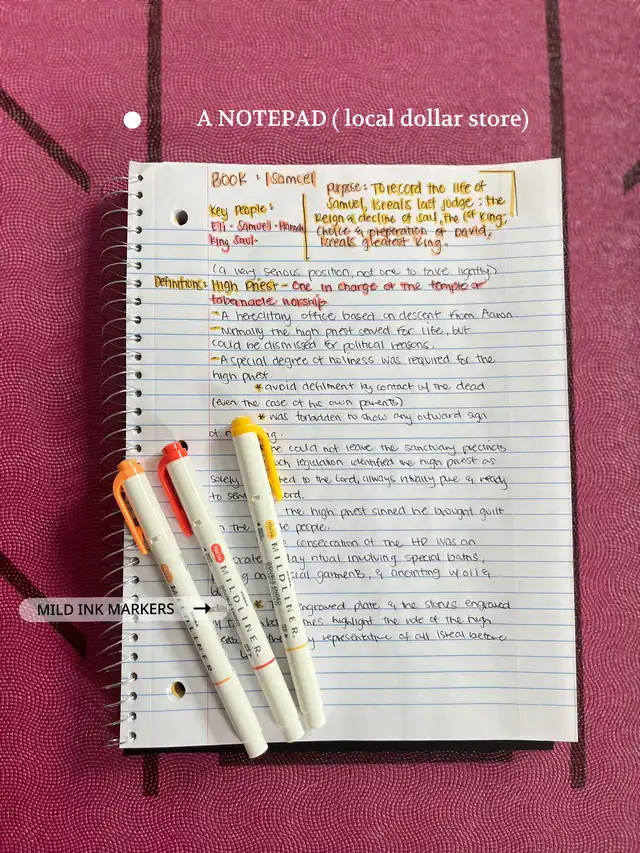 A NOTEPAD ( local dollar store)
BOOK : 1Samuel
Purpose: To record the life of
Samuel, Isreals last judge : the
Reign & decline of saul, the 1st King;
Choice & preperation of David,
Isreals greatest King.
Key People:
Eli - Samuel - Hannah
King Saul-
(a very serious position, not one to take lightly)
Definitions: High Priest - One in charge of the temple or
tabernacle worship
- A hereditary office based on descent from Aaron
- Normally the high priest served for life, but
could be dismissed for political reasons.
- A special degree of holiness was required for the
high priest.
* avoid defilment by contact w/ the dead
(even the case of his own parents)
* was forbidden to show any outward sign
of
he could not leave the sanctuary precincts
legislation identified the high priest as
solely to the Lord, always ritually pure & ready
to ord.
the high priest sinned he brought guilt
people.
consecration of the HP was an
ay ritual involving special baths,
garments, & anointing w/ oil &
MILD INK MARKERS →
* engraved plate & the stones engraved
highlight the role of the high
representative of all Isreal before
MILDLINER
MILDLINER
MILDLINER